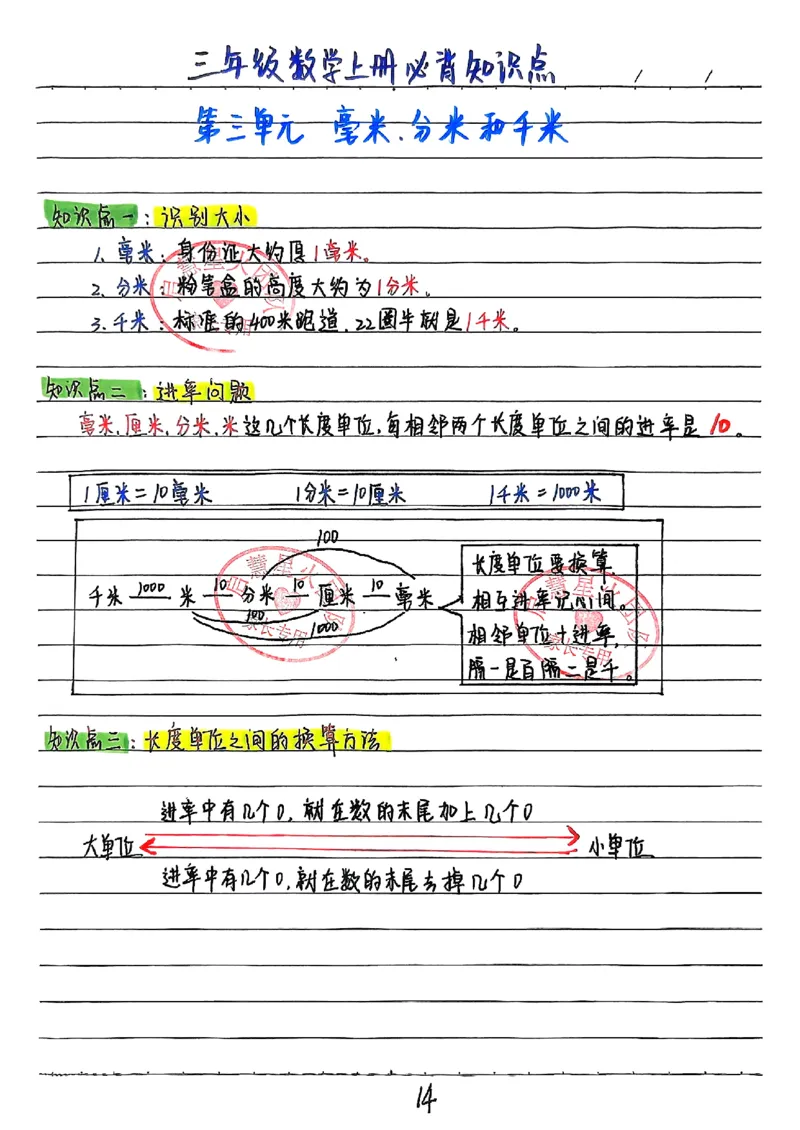 三年级数学上册必背知识点
第三单元 毫米、分米和千米
知识点一：识别大小
1. 毫米：身份证大约厚1毫米。
2. 分米：粉笔盒的高度大约为1分米。
3. 千米：标准的400米跑道，22圈半就是1千米。
知识点二：进率问题
毫米，厘米，分米，米这几个长度单位，每相邻两个长度单位之间的进率是10。
1厘米＝10毫米 1分米＝10厘米 1千米＝1000米
100
千米 1000 米 10 分米 10 厘米 10 毫米
100
1000
长度单位要换算，
相互进率记心间。
相邻单位十进率，
隔一是百隔二是千。
知识点三：长度单位之间的换算方法
进率中有几个0，就在数的末尾加上几个0
大单位 小单位
进率中有几个0，就在数的末尾去掉几个0
慧星火团队
家长专用
慧星火团队
家长专用
慧星火团队
家长专用
14